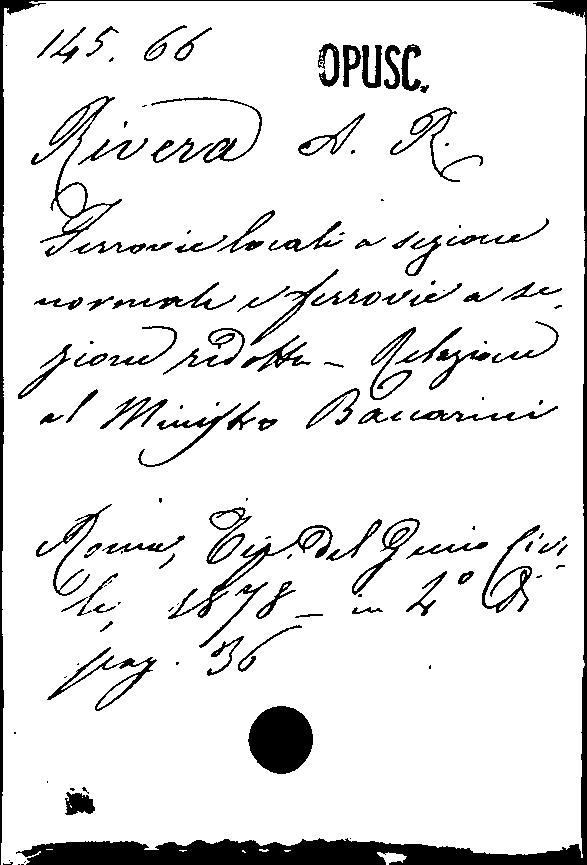 145. 66
OPUSC.
Rivera A. R.
Ferrovie locali a sezione
normale e ferrovie a se-
zione ridotta – Relazione
al Ministro Baccarini
Roma, Tip. del Genio Civi-
le, 1878 – in 4° di
pag. 36